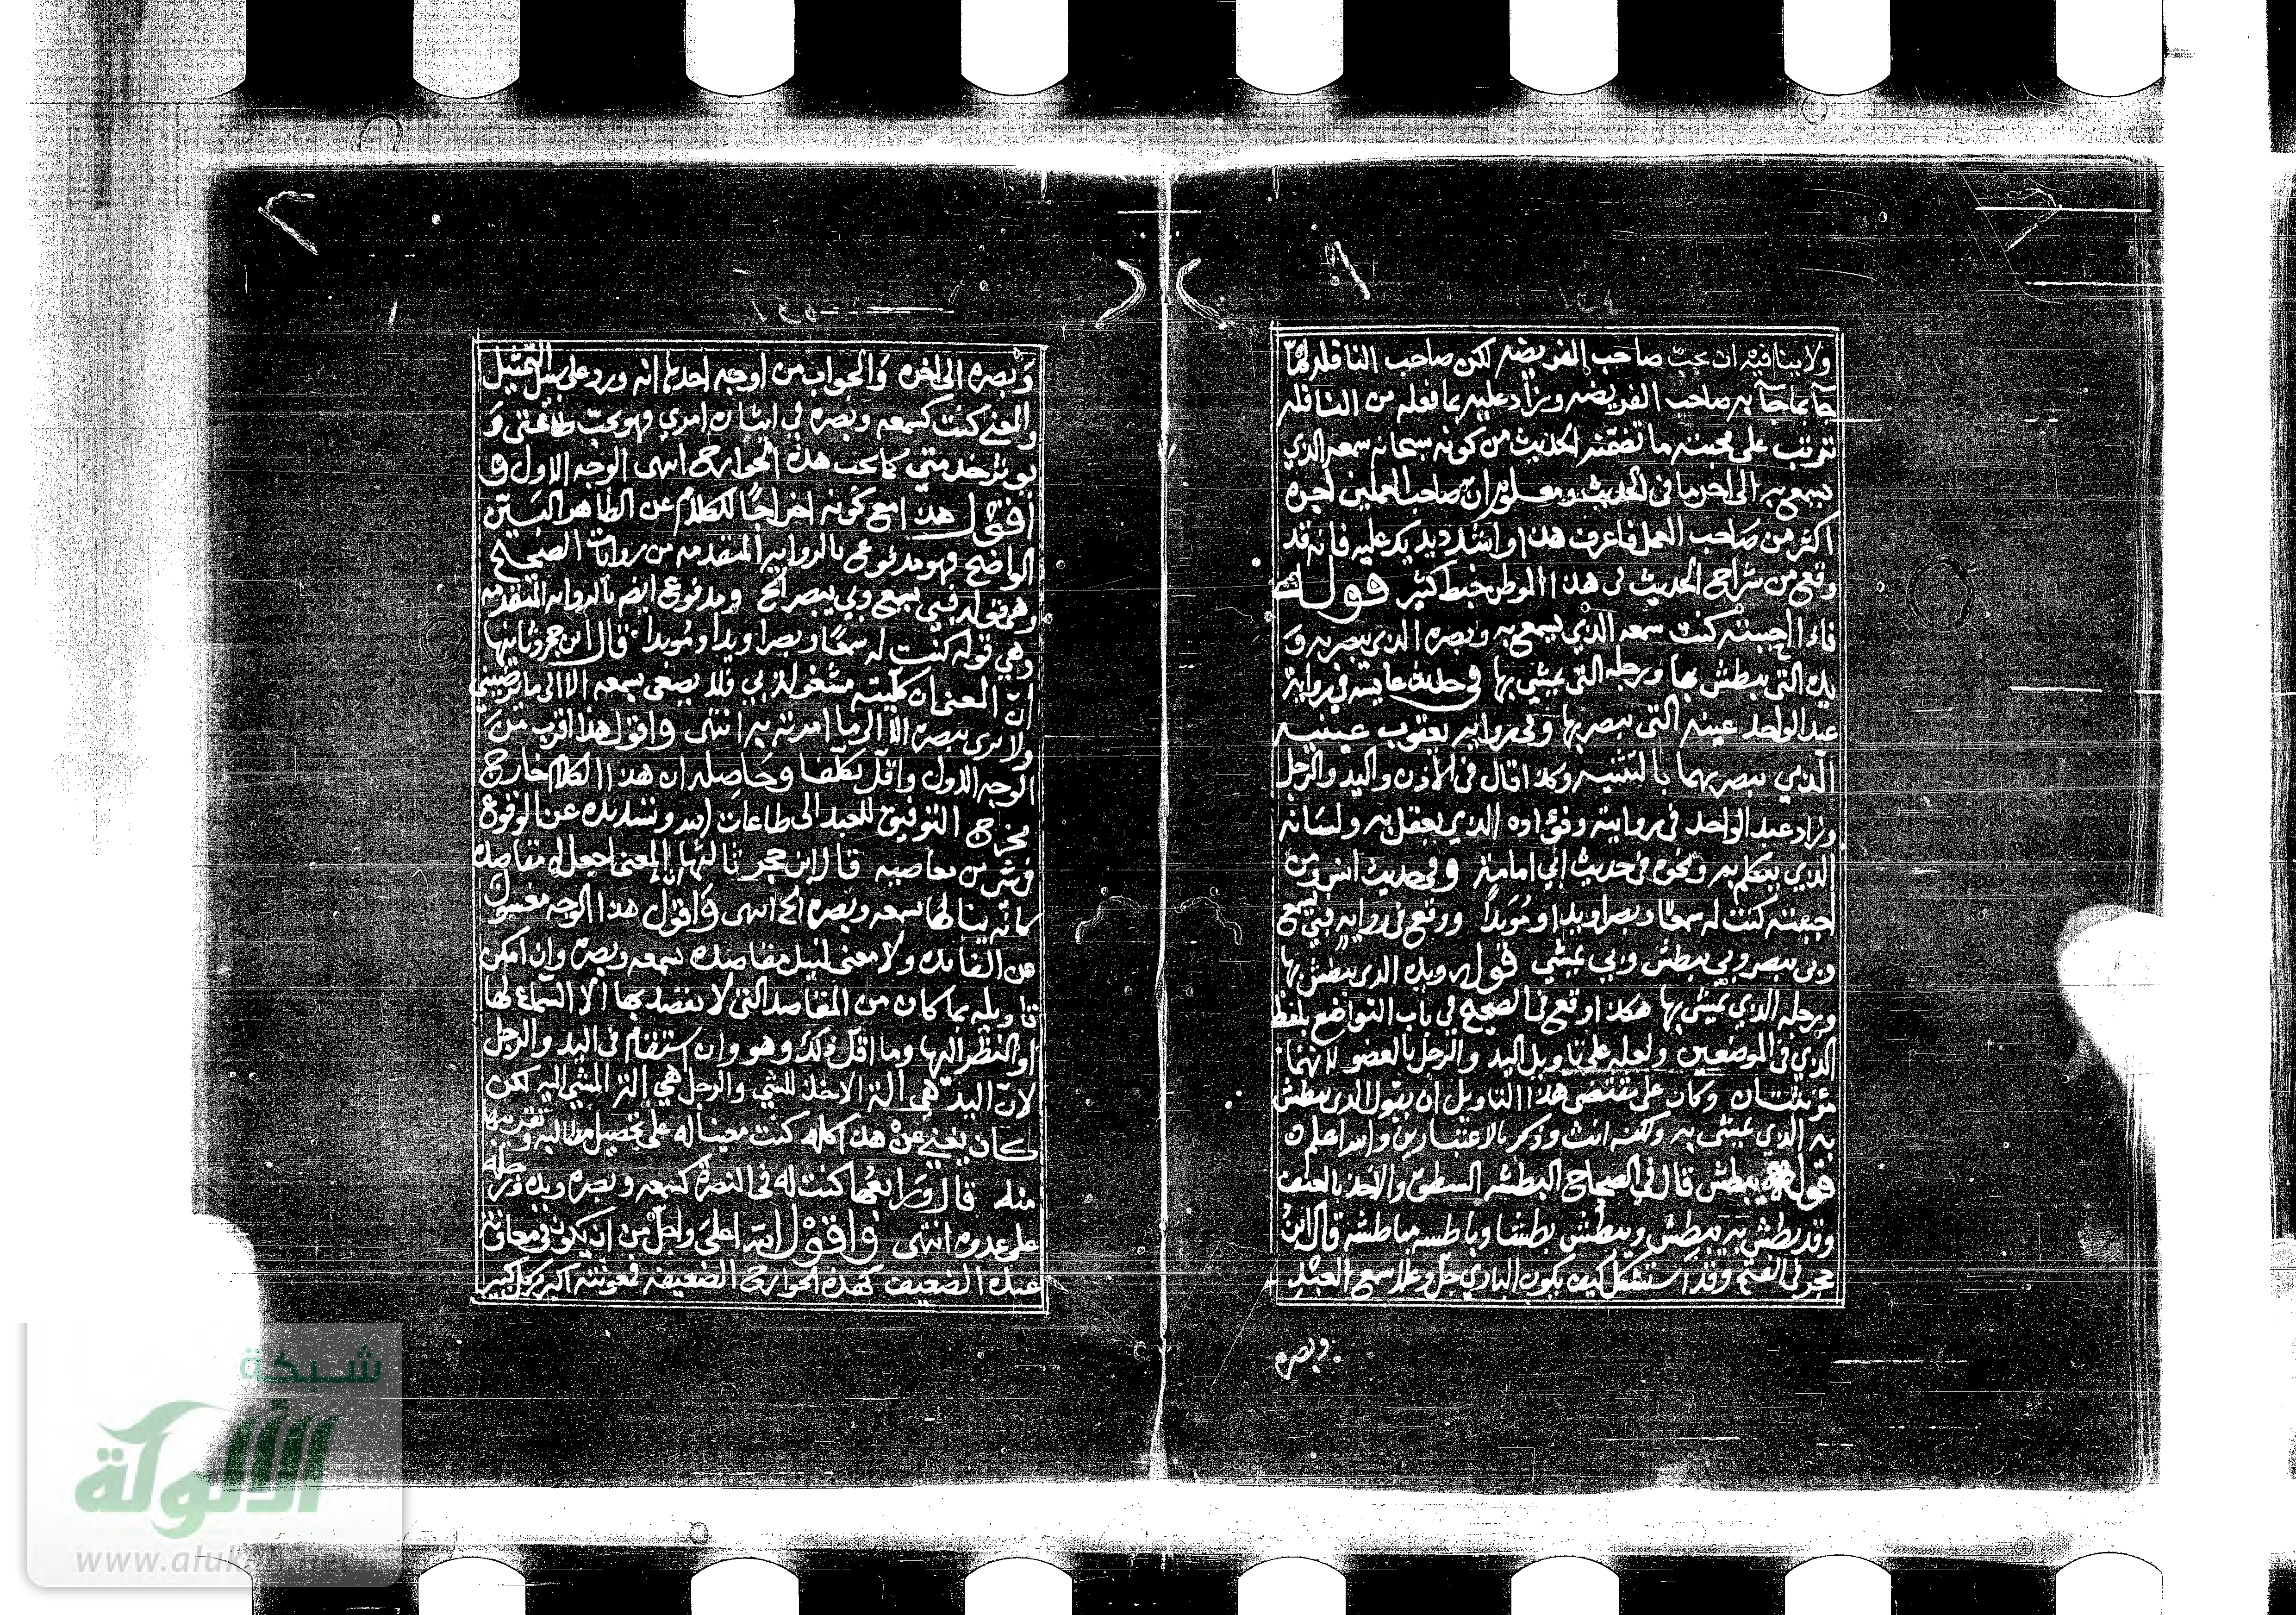 ولا ينافيه ان يحب صاحب الفريضة لكن صاحب النافلة لما
جآ بما جآ به صاحب الفريضه وزاد عليه بما فعله من النافله
ترتب على محبته ما تضمنه الحديث من كونه سبحانه سمعه الذي
يسمع به الى اخر ما في الحديث ومعلوم ان صاحب العملين اجره
اكثر من صاحب العمل فاعرف هذا واشدد يديك عليه فانه قد
وقع من شراح الحديث في هذا الموطن خبط كثير قوله
فاذا احببته كنت سمعه الذي يسمع به وبصره الذي يبصر به و
يده التي يبطش بها ورجله التي يمشي بها في حديث عايشه في رواية
عبد الواحد عينه التي يبصر بها وفي رواية يعقوب عينيه
الذي يبصر بهما بالتثنيه وكذا قال في الاذن واليد والرجل
وزاد عبد الواحد في روايته وفؤاده الذي يعقل به ولسانه
الذي يتكلم به ونحوه في حديث ابي امامة وفي حديث انس ومن
احببته كنت له سمعًا وبصرا ويدا ومُويدًا ووقع في رواية فبي يسمع
وبي يبصر وبي يبطش وبي يمشي قوله ويده الذي يبطش بها
ورجله الذي يمشي بها هكذا وقع في الصحيح في باب التواضع بلفظ
الذي في الموضعين ولعله على تاويل اليد والرجل بالعضو لانهما
مؤنثتان وكان على مقتضى هذا التاويل ان يقول الذي يبطش
به الذي يمشي به ولكنه انث وذكر بالاعتبارين والله اعلم
قوله يبطش قال في الصحاح البطشه السطوة والاخذ بالعنف
وقد بطش به يبطش ويبطش بطشا وباطشه مباطشه قال ابن
حجر في الفتح وقد استشكل كيف يكون الباري جل وعلا سمع العبد
وبصره
وبصره الى اخره والجواب من اوجه احدها انه ورد على سبيل التمثيل
والمعنى كنت كسمعه وبصره في ايثاره امري فهو يحب طاعتي و
يوثر خدمتي كما يحب هذه الجوارح انتهى الوجه الاول و
اقول هذا مع كونه اخراجًا للكلام عن الظاهر البين
الواضح فهو مدفوع بالرواية المتقدمه من روايات الصحيح
وهي قوله فبي يسمع وبي يبصر الخ ومدفوع ايضا بالروايه المتقدمه
وهي قوله كنت له سمعًا وبصرا ويدا ومويدا قال ابن حجر وثانيها
ان المعنى ان كليته مشغولة بي فلا يصغي بسمعه الا الى ما يرضيني
ولا يرى ببصره الا الى ما امرته به انتهى واقول هذا اقرب من
الوجه الاول واقل تكلفا وحاصله ان هذا الكلام خارج
مخرج التوفيق للعبد الى طاعات الله وتسديده عن الوقوع
في شي من معاصيه قال ابن حجر ثالثها المعنى اجعل له مقاصده
كانه ينالها بسمعه وبصره الخ انتهى واقول هذا الوجه مغسول
عن الفائده ولا معنى لنيل مقاصده بسمعه وبصره وان امكن
تاويله بما كان من المقاصد التي لا يقصد بها الا السماع لها
او النظر اليها وما اقل ذلك وهو وان استقام في اليد والرجل
لان اليد هي الة الاخذ للشي والرجل هي الة المشي اليه لكن
كان يغني عن هذا كله كنت معينا له على تحصيل مطالبه وتقريبها
منه قال ورابعها كنت له في النصرة كسمعه وبصره ويده ورجله
على عدوه انتهى واقول الله اعلى واجل من ان يكون في معاونة
عبده الضعيف كهذه الجوارح الضعيفه فمعونته اكبر من كل كبير
شبكة
الألولة
www.alukah.net